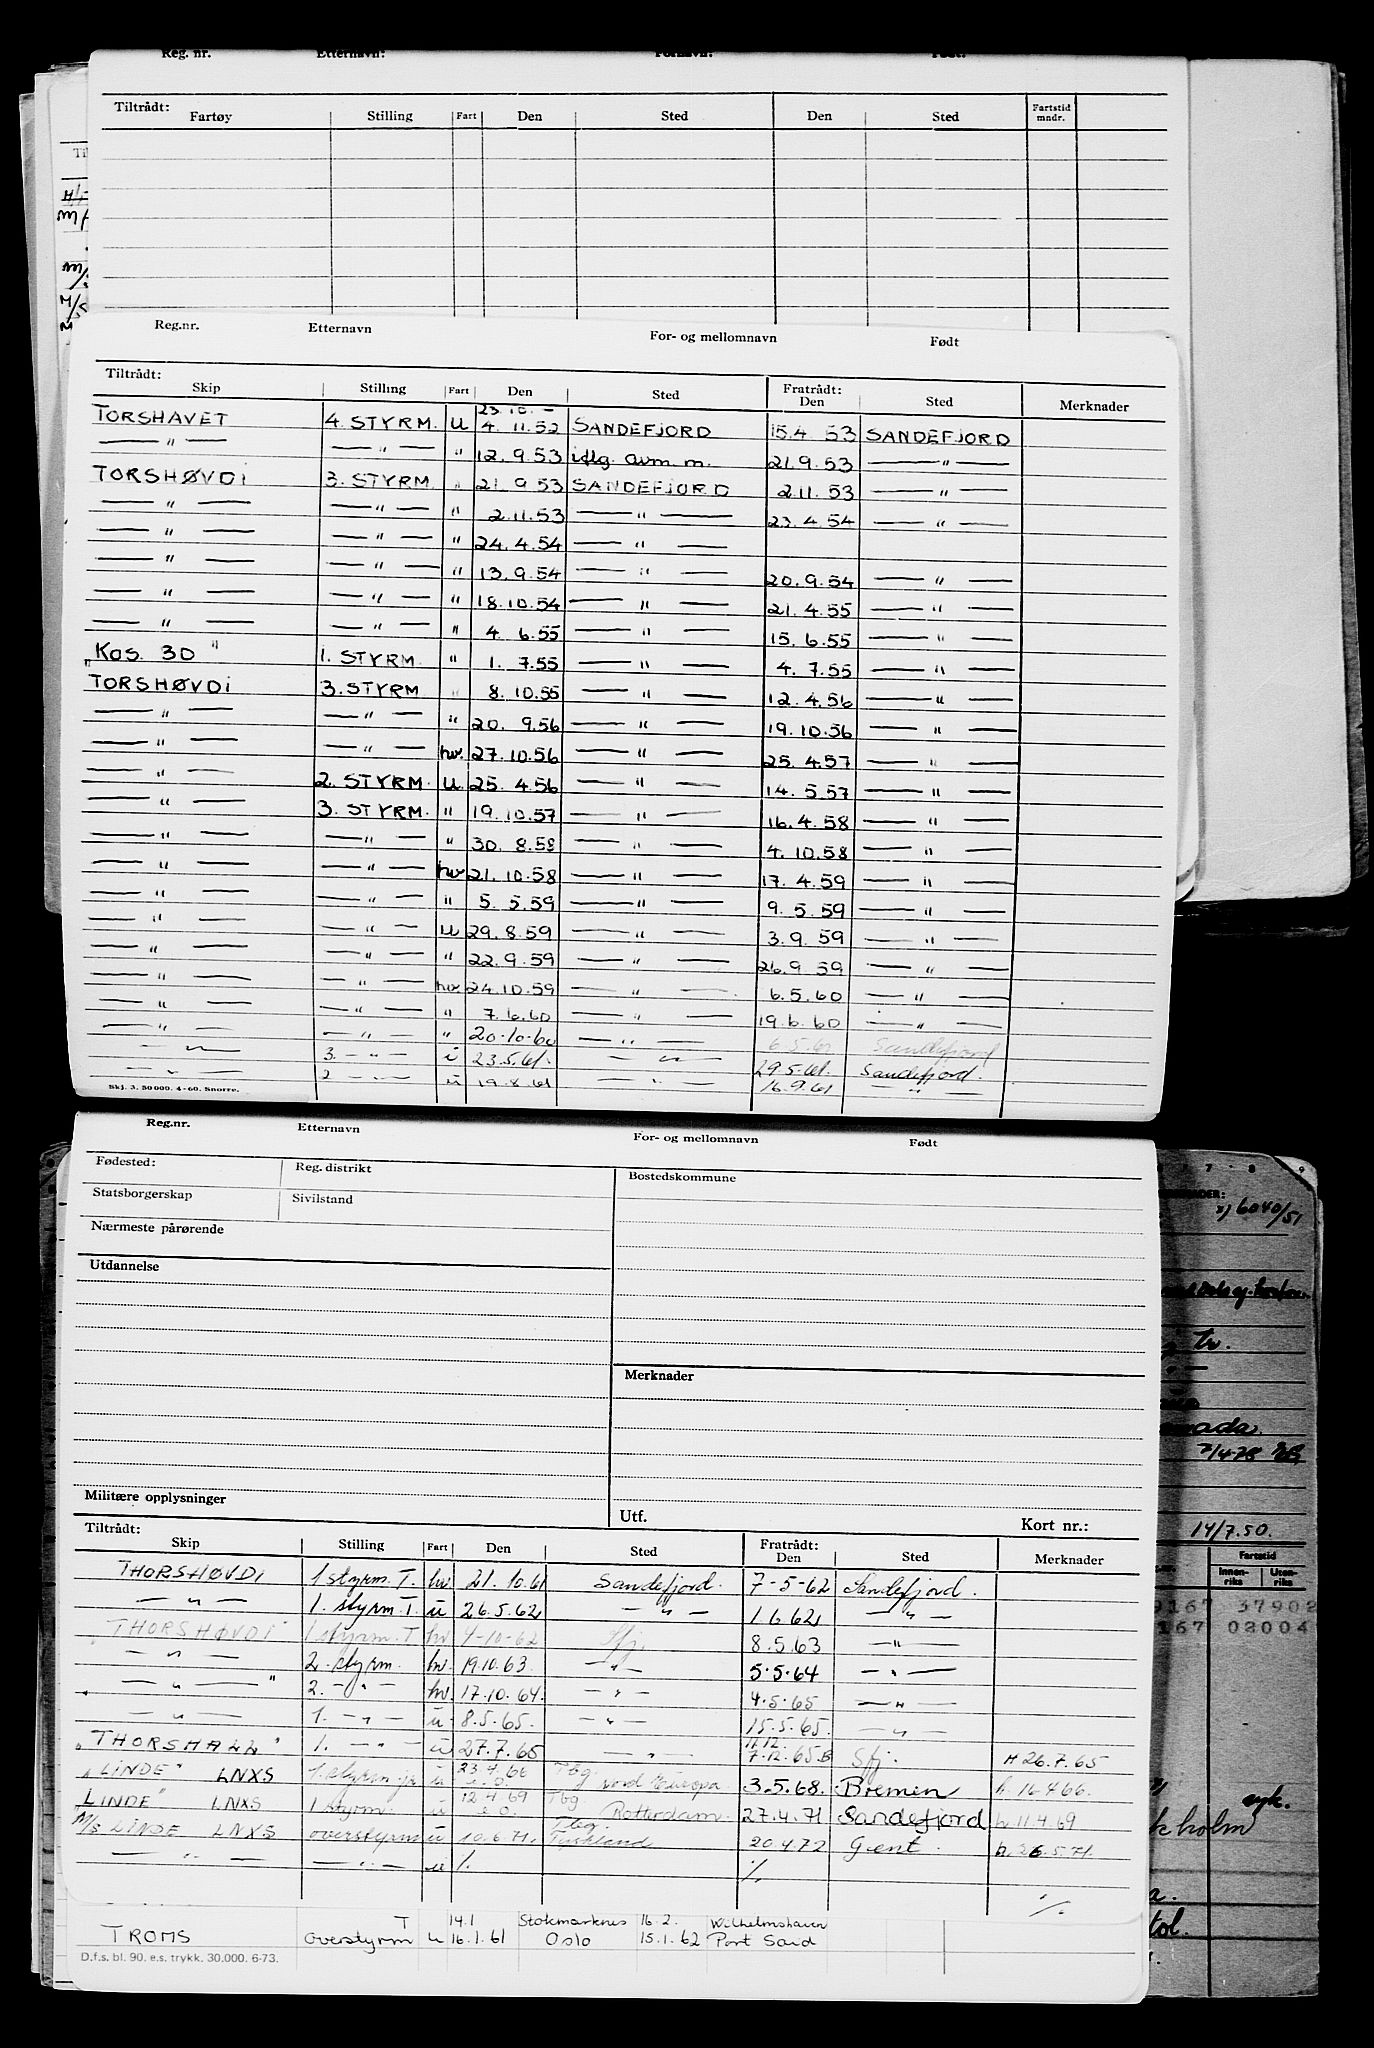 Reg. nr. Etternavn: Fornavn: Født:
Tiltrådt:
Fartøy Stilling Fart Den Sted Den Sted Fartstid mndr.
Reg.nr. Etternavn For- og mellomnavn Født
Tiltrådt: Fratrådt:
Skip Stilling Fart Den Sted Den Sted Merknader
23.10. —
TORSHAVET 4. STYRM. U 4. 11.52 SANDEFJORD 15.4 53 SANDEFJORD
— " — — " — " 12. 9.53 idlg. avm. m. 21.9.53 — " —
TORSHØVDI 3. STYRM. " 21. 9.53 SANDEFJORD 2.11. 53 — " —
— " — — " — " 2.11.53 — " — 23.4.54 — " —
— " — — " — " 24.4.54 — " —
— " — — " — " 13.9.54 — " — 20.9.54 — " —
— " — — " — " 18.10.54 — " — 21.4.55 — " —
— " — — " — " 4. 6.55 — " — 15.6.55 — " —
"Kos. 30" 1. STYRM. " 1. 7.55 — " — 4.7.55 — " —
TORSHØVDI 3. STYRM " 8.10.55 — " — 12.4.56 — " —
— " — — " — " 20. 9.56 — " — 19.10.56 — " —
— " — — " — hv. 27.10.56 — " — 25.4.57 — " —
— " — 2. STYRM. U 25. 4.56 — " — 14.5.57 — " —
— " — 3. STYRM. " 19.10.57 — " — 16.4.58 — " —
— " — — " — " 30. 8.58 — " — 4.10.58 — " —
— " — — " — hv 21.10.58 — " — 17.4.59 — " —
— " — — " — " 5. 5.59 — " — 9.5.59 — " —
— " — — " — u 29.8.59 — " — 3.9.59 — " —
— " — — " — " 22.9.59 — " — 26.9 59 — " —
— " — — " — hv 24.10.59 — " — 6.5.60 — " —
— " — — " — " 7.6.60 — " — 19.6.60 — " —
— " — — " — " 20.10.60 — " — 6.5.61 Sandefjord
— " — 3. — " — u 23.5.61. — " — 29.5.61. Sandefjord.
— " — 2 — " — u 19.8.61 — " — 16.9.61 — " —
Skj. 3. 50000. 4-60. Snorre.
Reg.nr. Etternavn For- og mellomnavn Født
Fødested: Reg. distrikt Bostedskommune
Statsborgerskap Sivilstand
Nærmeste pårørende
Utdannelse
Merknader
Militære opplysninger Utf. Kort nr.:
Tiltrådt: Fratrådt:
Skip Stilling Fart Den Sted Den Sted Merknader
THORSHØVDI 1 styrm. T. hv 21. 10.61 Sandefjord. 7-5-62 Sandefjord.
— " — 1. styrm T. u 26.5.62 — " — 1.6.62 — " —
"THORSHØVDI" 1 styrm. T hv 4-10-62 Sfj. 8.5.63 — " —
— " — 2. styrm. hv. 19.10.63. — " — 5.5.64 — " —
" — " — " 2. — " — hv. 17.10.64. — " — 4.5.65 — " —
— " — 1. — " — u 8.5.65. — " — 15.5.65. — " —
11.12.
"THORSHALL" 1. — " — u 27.7.65 — " — 7.12.65 Sfj. H 26.7.65
23.4.66 Tbg.
"LINDE" LNXS 1. styrm jr u nord Europa 3.5.68. Bremen h. 16.4.66.
12.4.69 Tbg
LINDE" LNXS 1 styrm. u Rotterdam. 27.4.71 Sandefjord h. 11.4.69
Tbg.
M/S LINDE LNXS overstyrm u 10.6.71. Tyskland 20.4.72 Gent. h. 26.5.71.
— " — — " — u /. /. /.
T 14.1 Stokmarknes 16.2. Wilhelmshaven
TROMS overstyrm u 16.1.61 Oslo 15.1.62 Port Said
D.f.s. bl. 90. e.s. trykk. 30.000. 6-73.
6040/51
Tr.
7/4-78
14/7.50.
Fartstid
Innenriks Utenriks
9167 37902
167 02004
syk.